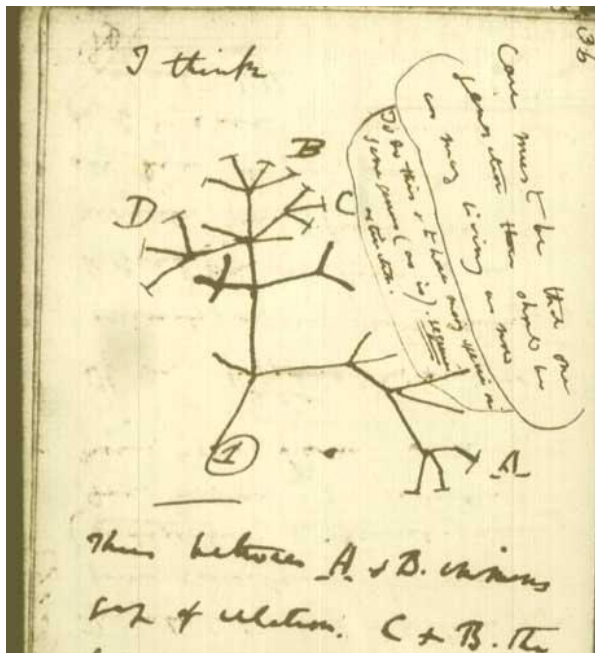 36
I think
Case must be that one
generation then should be
as many living as now
To do this & to have many species in
same genus (as is). requires
extinction.
B
D
C
1
A
Thus between A & B. immense
gap of relation. C & B. The